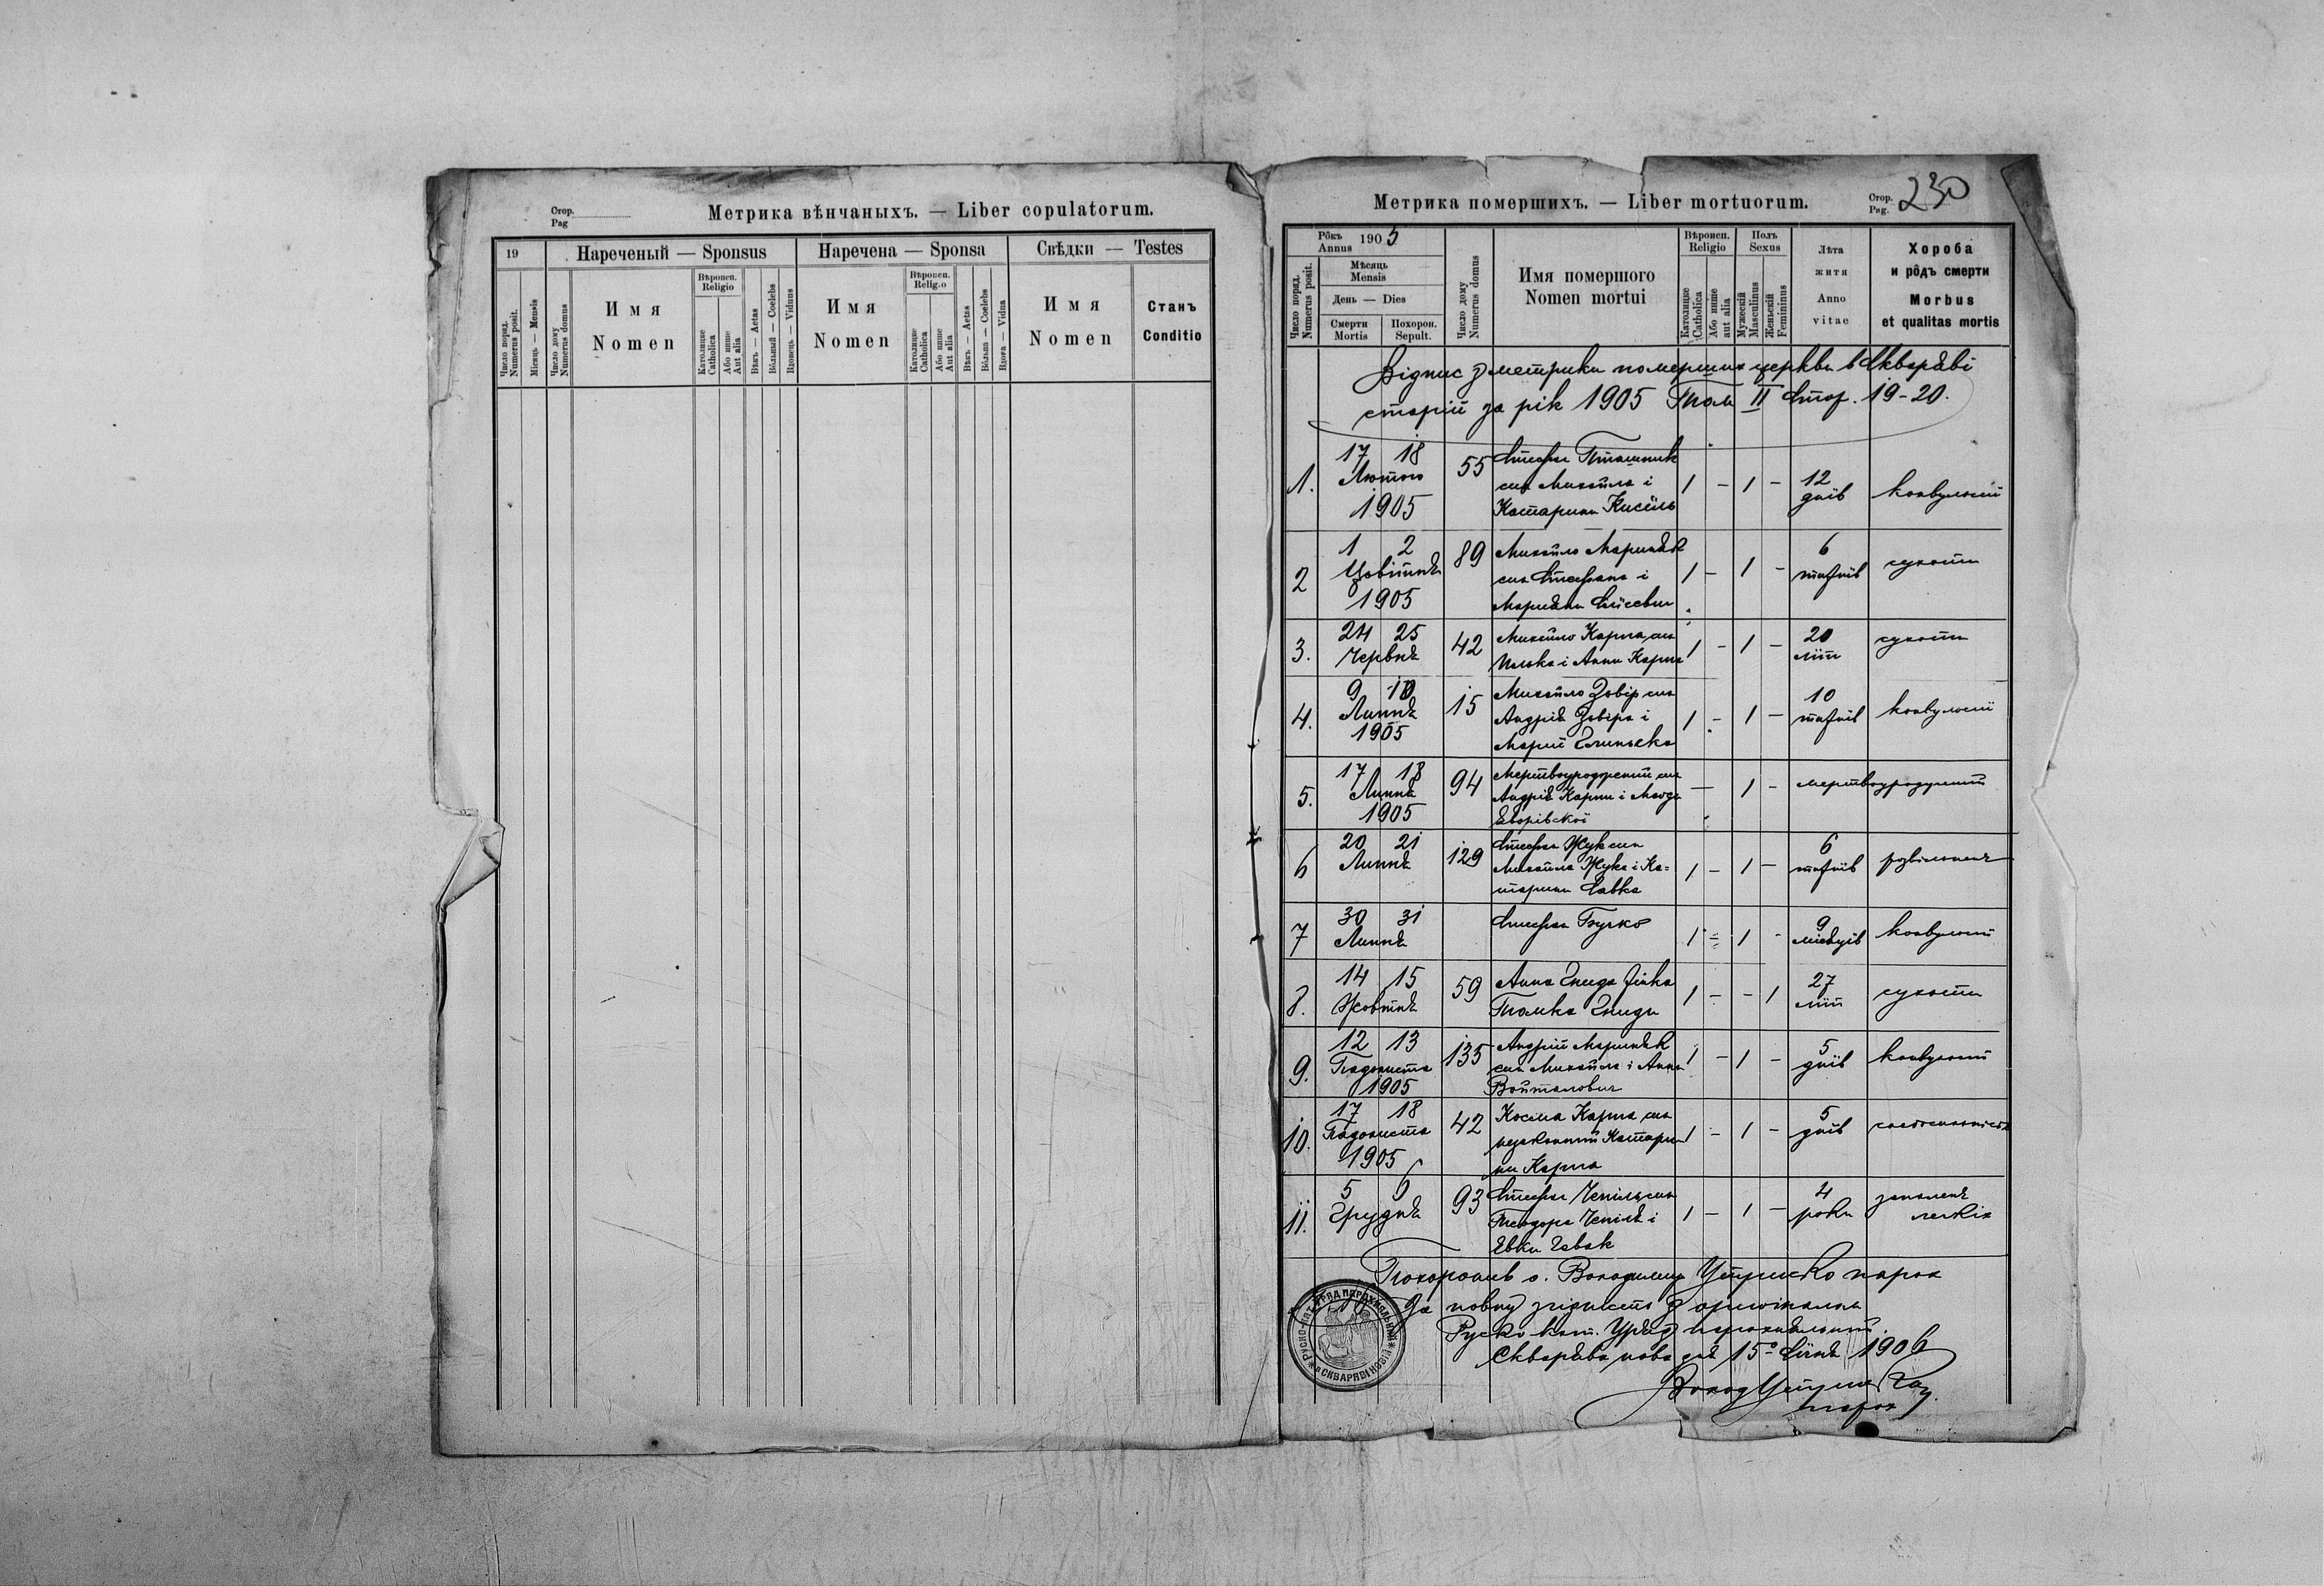 Стор.
Pag
Метрика вѣнчаныхъ. — Liber copulatorum.
19
Нареченый — Sponsus
Наречена — Sponsa
Свѣдки — Testes
Число поряд.
Numerus posit.
Місяць — Mensis
Число дому
Numerus domus
Имя
Nomen
Вѣроисп.
Religio
Католицке
Catholica
Або инше
Aut alia
Вѣкъ — Aetas
Вôльный — Coelebs
Вдовець — Viduus
Имя
Nomen
Вѣроисп.
Relig.o
Католицке
Catholica
Або инше
Aut alia
Вѣкъ — Aetas
Вôльна — Coelebs
Вдова — Vidua
Имя
Nomen
Станъ
Conditio
Метрика помершихъ. — Liber mortuorum.
Стор.
Pag. 230
Рôкъ
Annus 1905
Число поряд.
Numerus posit.
Мѣсяць
Mensis
День — Dies
Смерти
Mortis
Похорон.
Sepult.
Число дому
Numerus domus
Имя помершого
Nomen mortui
Вѣроисп.
Religio
Католицке
Catholica
Або инше
aut alia
Полъ
Sexus
Мужескій
Masculinus
Женьскій
Femininus
Лѣта
житя
Anno
vitae
Хороба
и рôдъ смерти
Morbus
et qualitas mortis
Відпис з метрики померших церкви в Скваряві
старій за рік 1905 Том II Стор. 19-20.
1. 17 18 55 Стефан Пташник 12
Лютого син Михайла і 1 - 1 - днїв конвульсиї
1905 Катарини Кисїль
2 1 2 89 Михайло Мариняк 6
Цьвітня син Стефана і 1 - 1 - тижнїв сухоти
1905 Марияни
3. 24 25 42 Михайло Карпа син 1 - 1 - 20 сухоти
Червня Илька і Анни Карпа лїт
4. 9 10 15 Михайло Звір син 10
Липня Андрія Звіра і 1 - 1 - тижнїв конвульсиї
1905 Мариї
5. 17 18 94 Мертвоуроджений син — 1 - мертвоуроджений
Липня Андрія Карпи і
1905 Яворівскої
6 20 21 129 Стефан Жук син 6
Липня Михайла Жука і Ка- 1 - 1 - тижнїв
тарини Савка
7 30 31 Стефан Бучко 1 - 1 - 9 конвульсиї
Липня місяцїв
8. 14 15 59 Анна Гнида жінка 1 - - 1 27 сухоти
Жовтня Томка Гниди лїт
9. 12 13 135 Андрій Мариняк 1 - 1 - 5 конвульсиї
Падолиста син Михайла і Анни днїв
1905 Войталович
10. 17 18 42 Косма Карпа син 5
Падолиста незаконний Катари- 1 - 1 - днїв
1905 ни Карпа
11. 5 6 93 Стефан Чепіль син 4 запаленє
Грудня Теодора Чепіля і 1 - 1 - роки легких
Евки
Похоронив о. Володимир парох
За повну згідність з оригіналом
Руско кат. Уряд парохіяльний
Сквarява нова дня 15го Сїчня 1906
парох